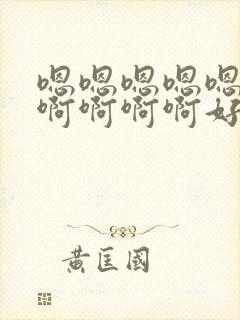 嗯嗯嗯嗯嗯
啊啊啊啊好
黄匡國